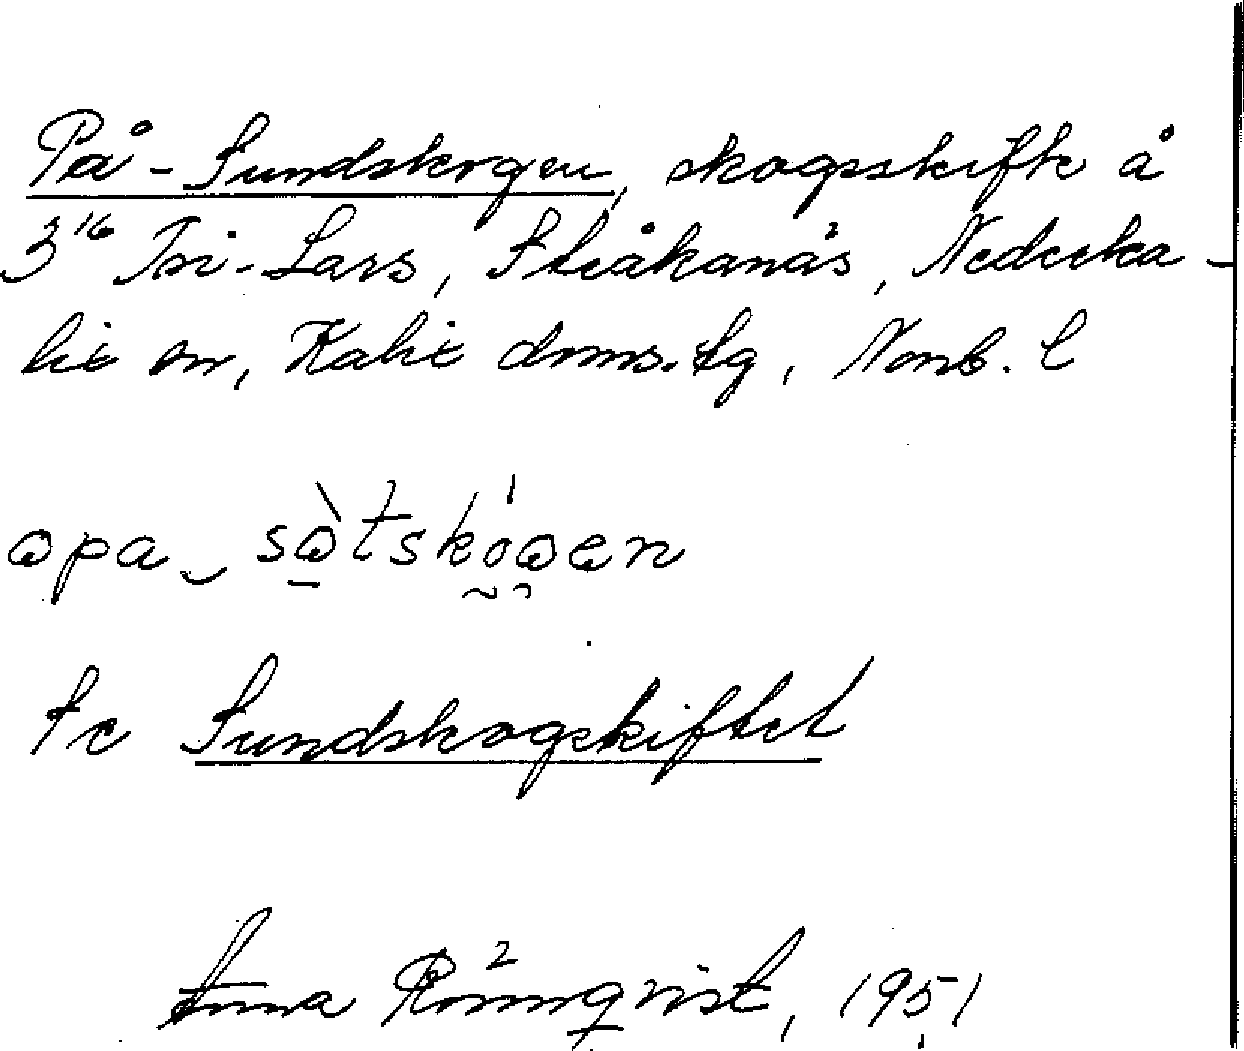 På-Sundskogen, skogsskifte å
3¹⁶ Tri-Lars, Stråkanäs, Nederka-
lix sn, Kalix doms.tg, Norrb. l
opa sòtskóoen
Se Sundskogskiftet
Anna Rönnqvist, 1951